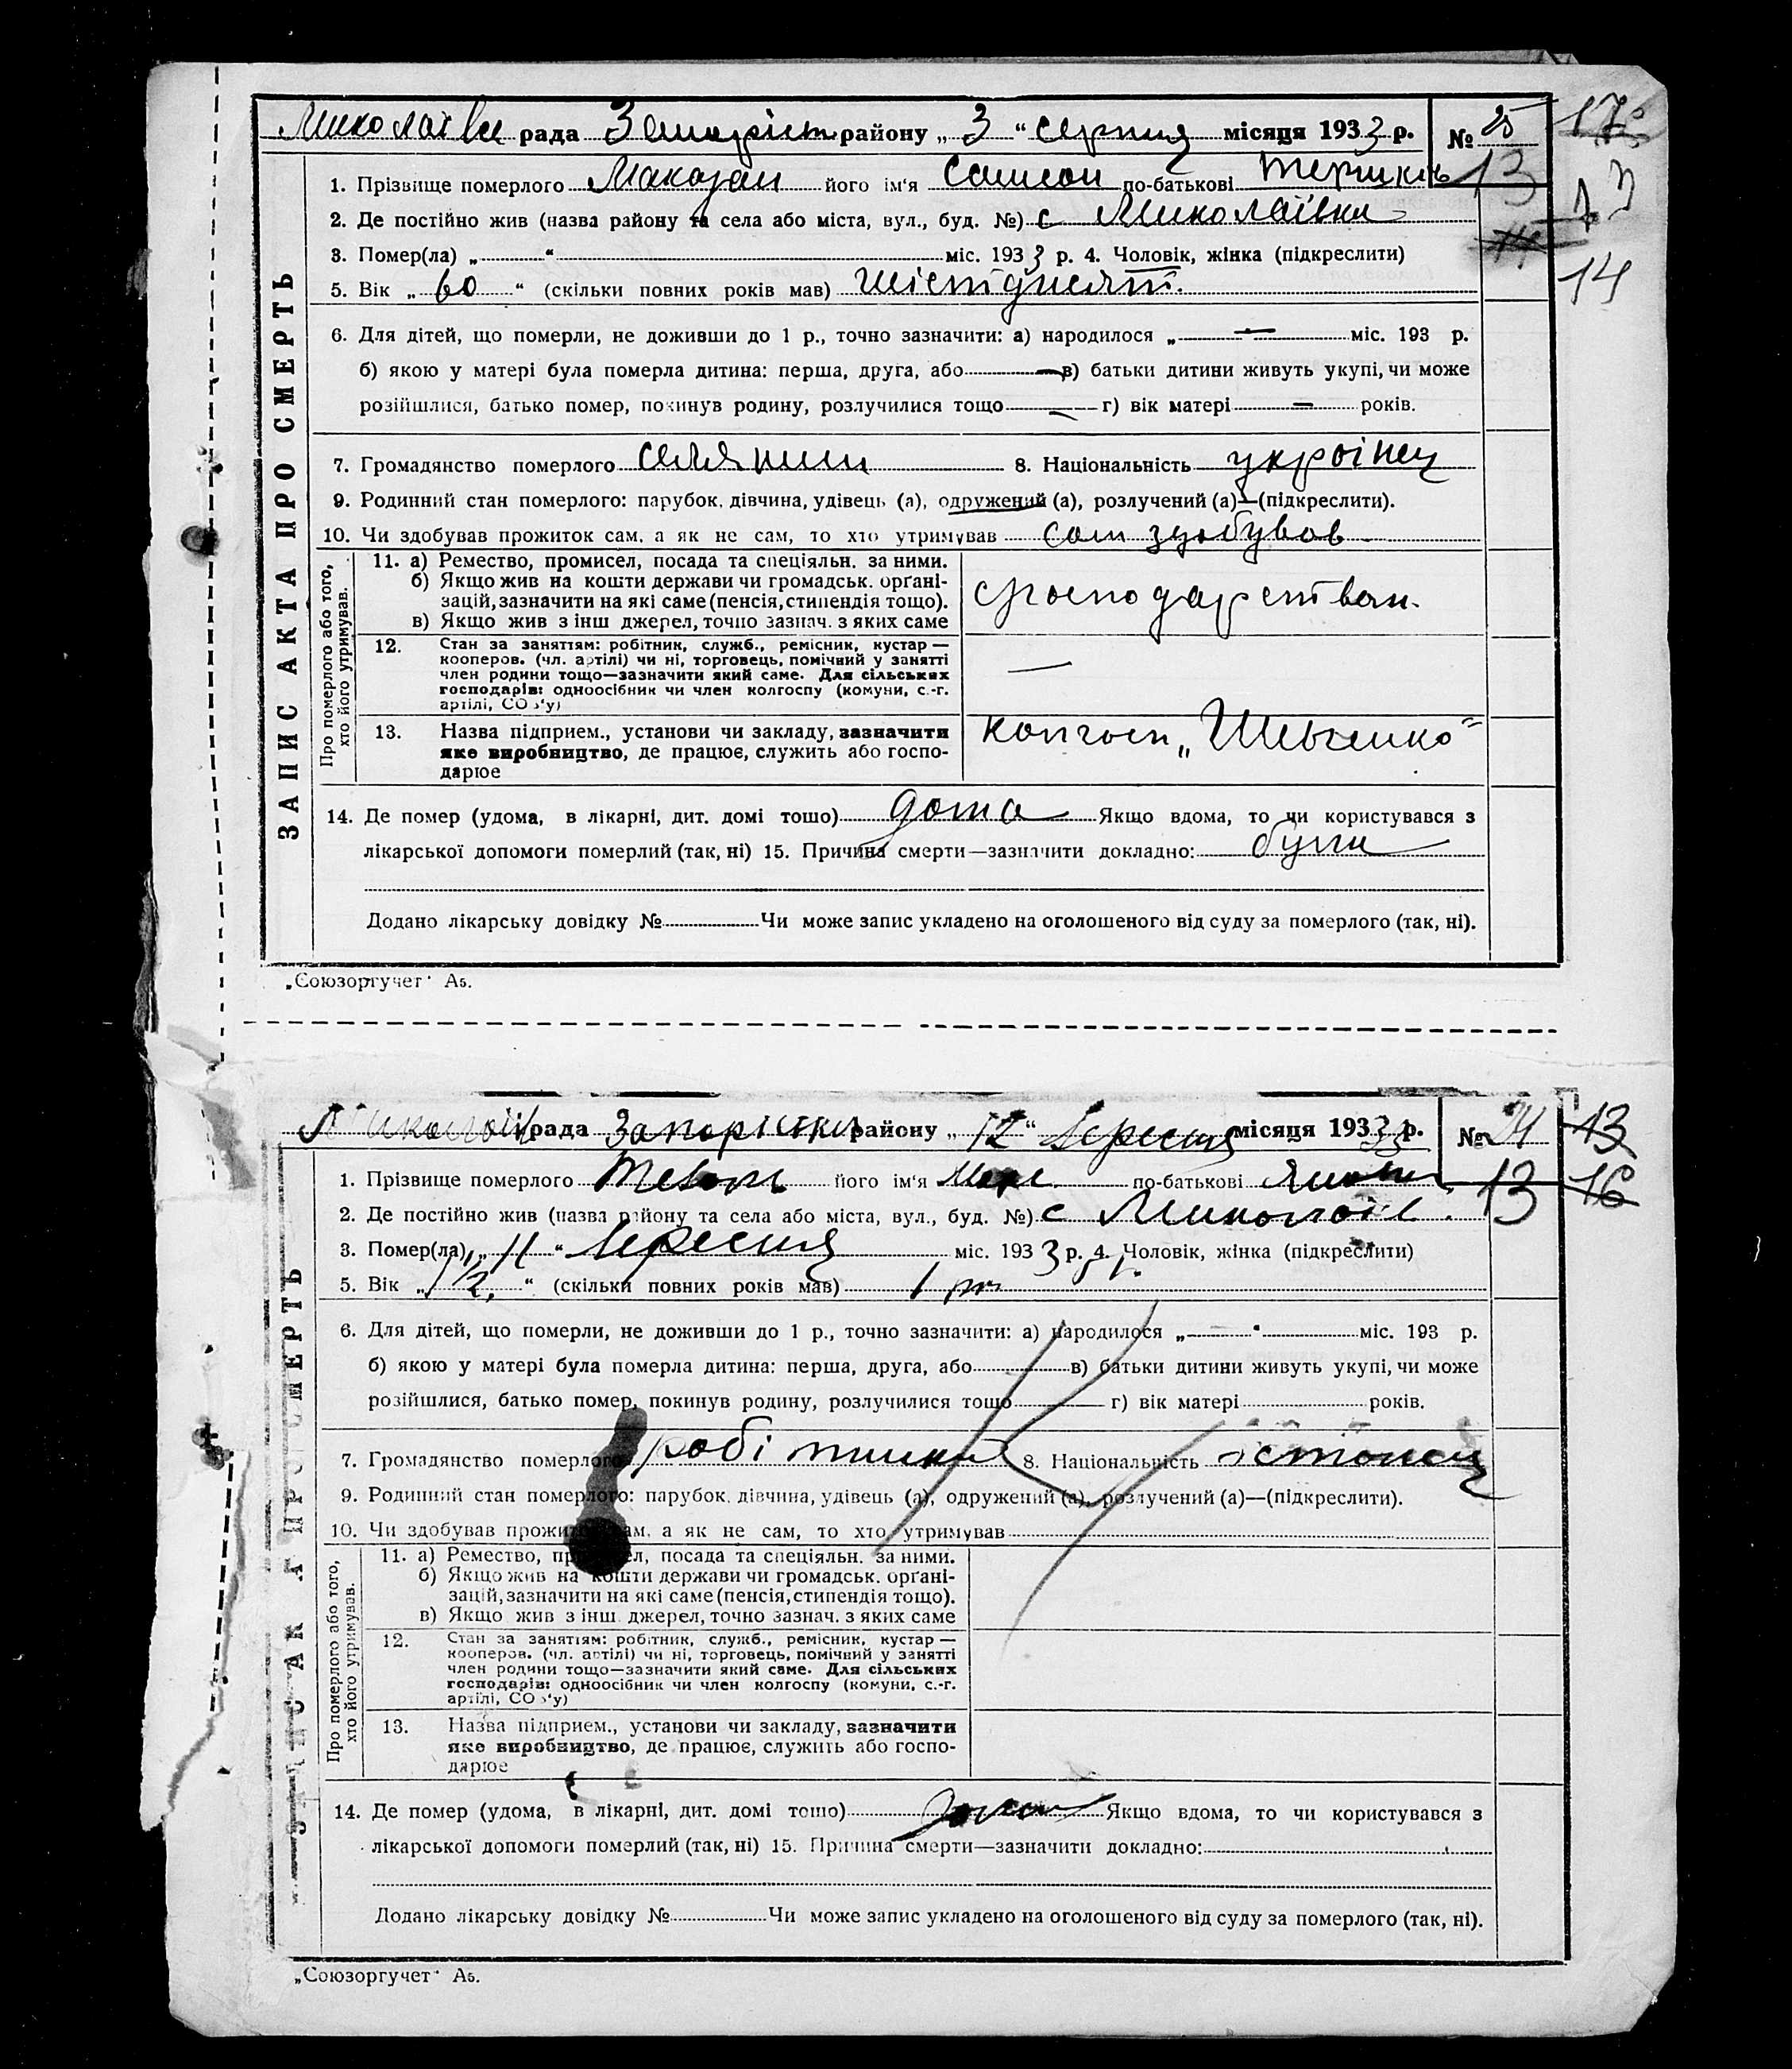 Миколаївс рада Запоріж району „ 3 “ серпня місяця 1933 р. № 25
17
13
13
14
ЗАПИС АКТА ПРО СМЕРТЬ
1. Прізвище померлого його ім‘я Самсон по-батькові
2. Де постійно жив (назва району та села або міста, вул., буд. №) с Миколаївка
3. Помер(ла) „ “ міс. 1933 р. 4. Чоловік, жінка (підкреслити)
5. Вік „ 60 “ (скільки повних років мав) шістдисят
6. Для дітей, що померли, не доживши до 1 р., точно зазначити: а) народилося „ — “ міс. 193 р.
б) якою у матері була померла дитина: перша, друга, або — в) батьки дитини живуть укупі, чи може
розійшлися, батько помер, покинув родину, розлучилися тощо — г) вік матері — років.
7. Громадянство померлого селянин 8. Національність українец
9. Родинний стан померлого: парубок, дівчина, удівець (а), одружений (а), розлучений (а)—(підкреслити).
10. Чи здобував прожиток сам, а як не сам, то хто утримував сам здобував
Про померлого або того, хто його утримував.
11. а) Ремество, промисел, посада та спеціяльн. за ними.
б) Якщо жив на кошти держави чи громадськ. орґані-
зацій, зазначити на які саме (пенсія, стипендія тощо).
в) Якщо жив з інш джерел, точно зазнач. з яких саме
12. Стан за заняттям: робітник, служб., ремісник, кустар —
кооперов. (чл. артілі) чи ні, торговець, помічний у занятті
член родини тощо—зазначити який саме. Для сільських
господарів: одноосібник чи член колгоспу (комуни, с.-г.
артілі, СОЗ‘у)
—
13. Назва підприєм., установи чи закладу, зазначити
яке виробництво, де працює, служить або госпо-
дарює
колгосп „Шевченко“
14. Де помер (удома, в лікарні, дит. домі тощо) дома Якщо вдома, то чи користувався з
лікарської допомоги померлий (так, ні) 15. Причина смерти—зазначити докладно:
Додано лікарську довідку № Чи може запис укладено на оголошеного від суду за померлого (так, ні).
„Союзоргучет“ А5.
рада Запоріжки району „ 12 “ вересня місяця 1933 р. № 24
13
13
16
ЗАПИС АКТА ПРО СМЕРТЬ
1. Прізвище померлого його ім‘я по-батькові
2. Де постійно жив (назва району та села або міста, вул., буд. №) с
3. Помер(ла) „ 11 “ вересня міс. 1933 р. 4. Чоловік, жінка (підкреслити)
5. Вік „ 1 1/2 “ (скільки повних років мав) 1
6. Для дітей, що померли, не доживши до 1 р., точно зазначити: а) народилося „ “ міс. 193 р.
б) якою у матері була померла дитина: перша, друга, або в) батьки дитини живуть укупі, чи може
розійшлися, батько помер, покинув родину, розлучилися тощо г) вік матері років.
7. Громадянство померлого 8. Національність естонец
9. Родинний стан померлого: парубок, дівчина, удівець (а), одружений (а), розлучений (а)—(підкреслити).
10. Чи здобував прожиток сам, а як не сам, то хто утримував
Про померлого або того, хто його утримував.
11. а) Ремество, промисел, посада та спеціяльн. за ними.
б) Якщо жив на кошти держави чи громадськ. орґані-
зацій, зазначити на які саме (пенсія, стипендія тощо).
в) Якщо жив з інш. джерел, точно зазнач. з яких саме
12. Стан за заняттям: робітник, служб., ремісник, кустар —
кооперов. (чл. артілі) чи ні, торговець, помічний у занятті
член родини тощо—зазначити який саме. Для сільських
господарів: одноосібник чи член колгоспу (комуни, с.-г.
артілі, СОЗ‘у)
13. Назва підприєм., установи чи закладу, зазначити
яке виробництво, де працює, служить або госпо-
дарює
14. Де помер (удома, в лікарні, дит. домі тощо) Якщо вдома, то чи користувався з
лікарської допомоги померлий (так, ні) 15. Причина смерти—зазначити докладно:
Додано лікарську довідку № Чи може запис укладено на оголошеного від суду за померлого (так, ні).
„Союзоргучет“ А5.